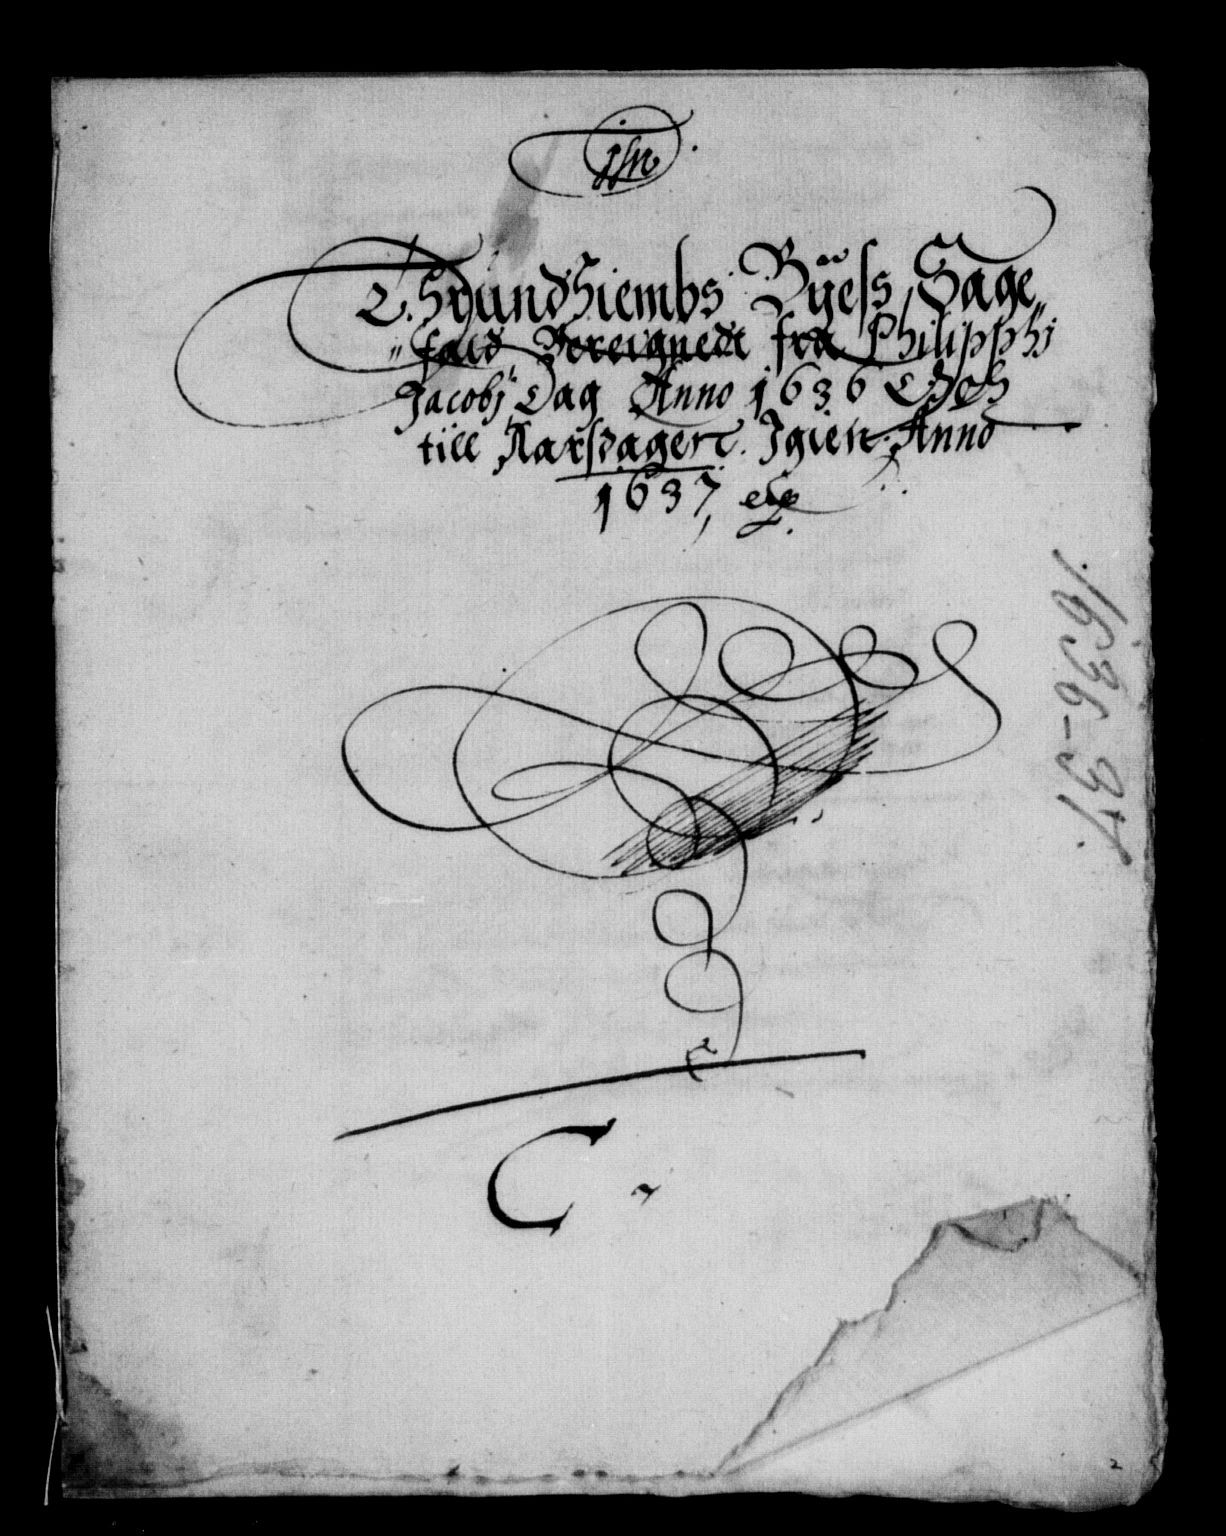 Thrundhiembs Byess Sage
fald Bereignedt fra Philipphj
Jacobj Dag Anno 1636 Och
till Aarsdagen Igien Anno
1637
1636-37.
C
2